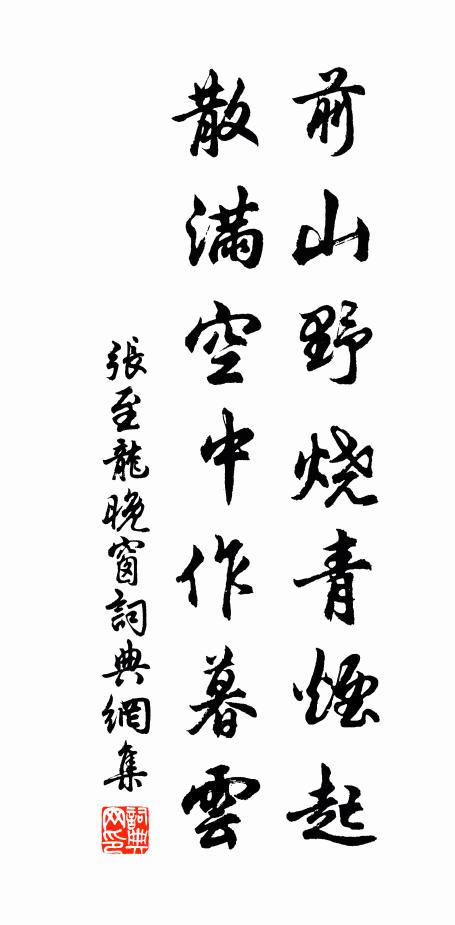 前山野烧青煙起
散满空中作暮雲
張至龍晚窗詞典網集
詞典网印